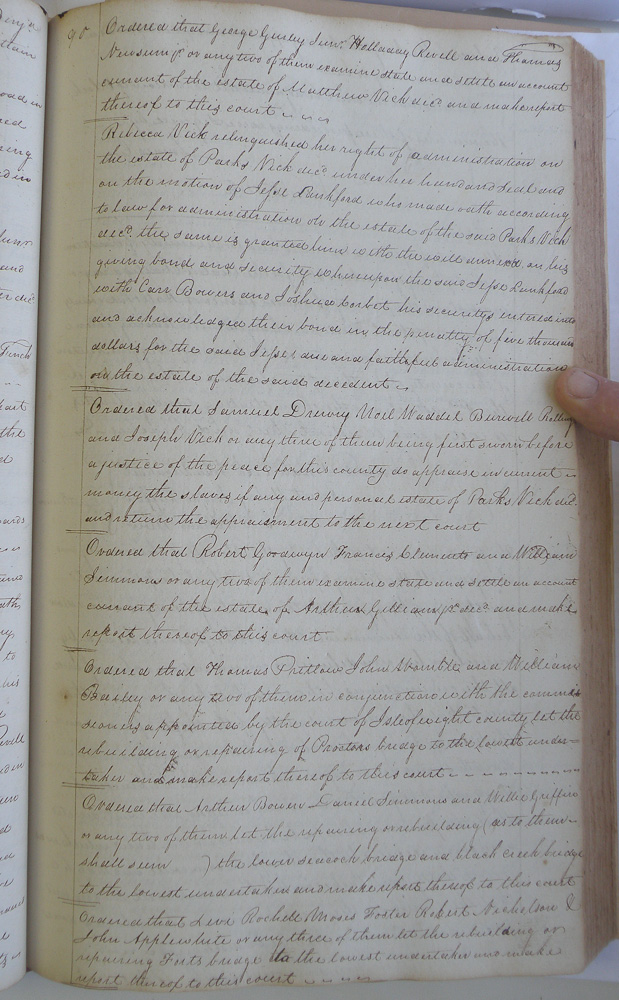 90
Ordered that George Gurley Senr. Holladay Revell and Thomas
Newsum jr. or any two of them examine state and settle an account
currant of the estate of Matthew Vick decd. and make report
thereof to this court
Rebecca Vick relinquished her right of administration on
the estate of Parks Vick decd. under her hand and seal and
on the motion of Jesse Lankford who made oath according
to law for administration on the estate of the said Parks Vick
decd. the same is granted him with the will annexed on his
giving bond and security whereupon the said Jesse Lankford
with Carr Bowers and Joshua Corbet his securitys entered into
and acknowledged their bond in the penalty of five thousand
dollars for the said Jesse's due and faithful administration
on the estate of the said decedent
Ordered that Samuel Drewry Noel Waddel Burwell
and Joseph Vick or any three of them being first sworn before
a justice of the peace for this county do appraise in current
money the slaves if any and personal estate of Parks Vick decd.
and return the appraisment to the next court
Ordered that Robert Goodwyn Francis Clements and William
Simmons or any two of them examine state and settle an account
currant of the estate of Arthur Gilliam jr. decd. and make
report thereof to this court
Ordered that Thomas Pretlow John Womble and William
Bailey or any two of them in conjunction with the commis
sioners appointed by the court of Isle of wight county let the
rebuilding or repairing of Proctors bridge to the lowest under-
taker and make report thereof to this court
Ordered that Arthur Bowen Daniel Simmons and Willie Griffin
or any two of them let the repairing or rebuilding (as to them
shall seem ) the lower seacock bridge and black creek bridge
to the lowest undertaker and make report thereof to this court
Ordered that Levi Rochell Moses Foster Robert Nicholson &
John Applewhite or any three of them let the rebuilding or
repairing Forts bridge to the lowest undertaker and make
report thereof to this court